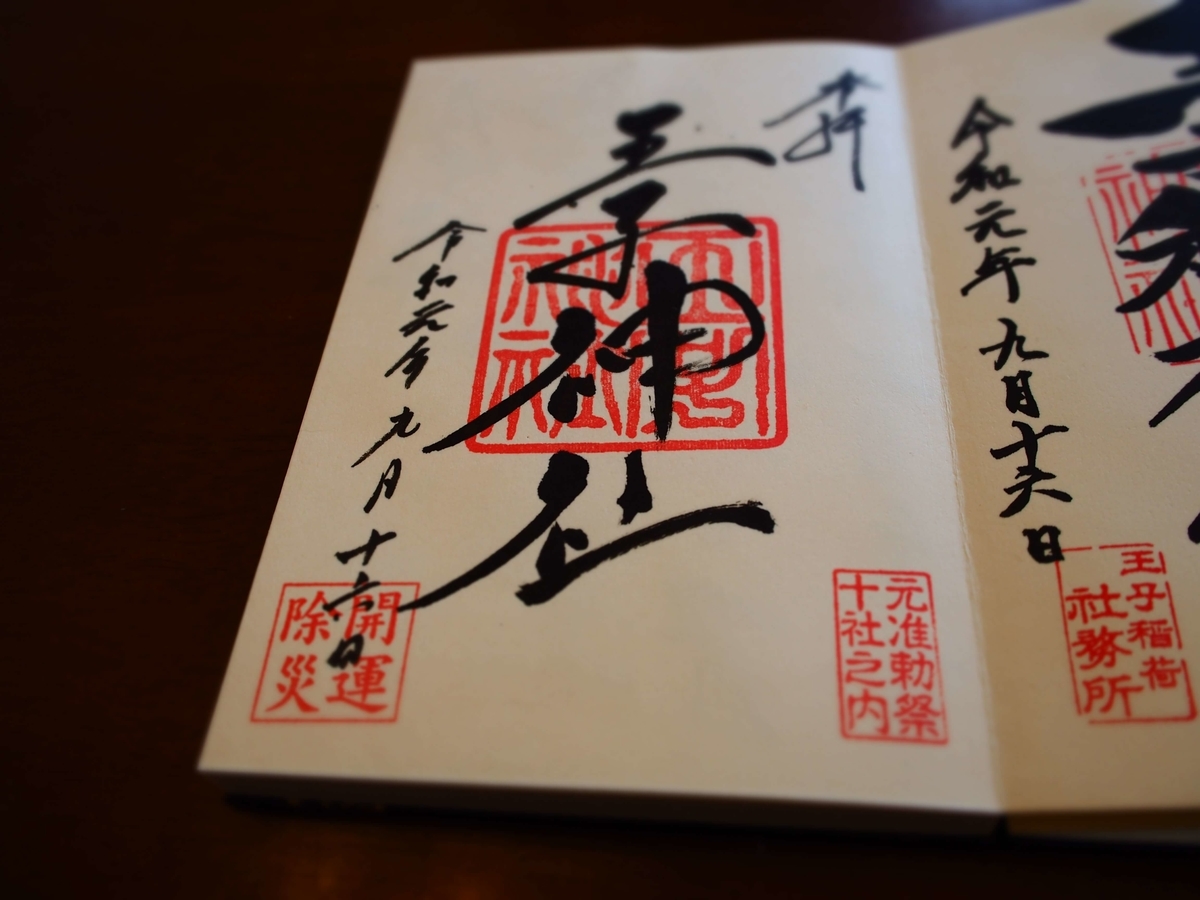 令和元年九月十六日
王子稲荷
社務所
奉拝
王子神社
王子神社
元准勅祭
十社之内
令和元年九月十六日
開運
除災